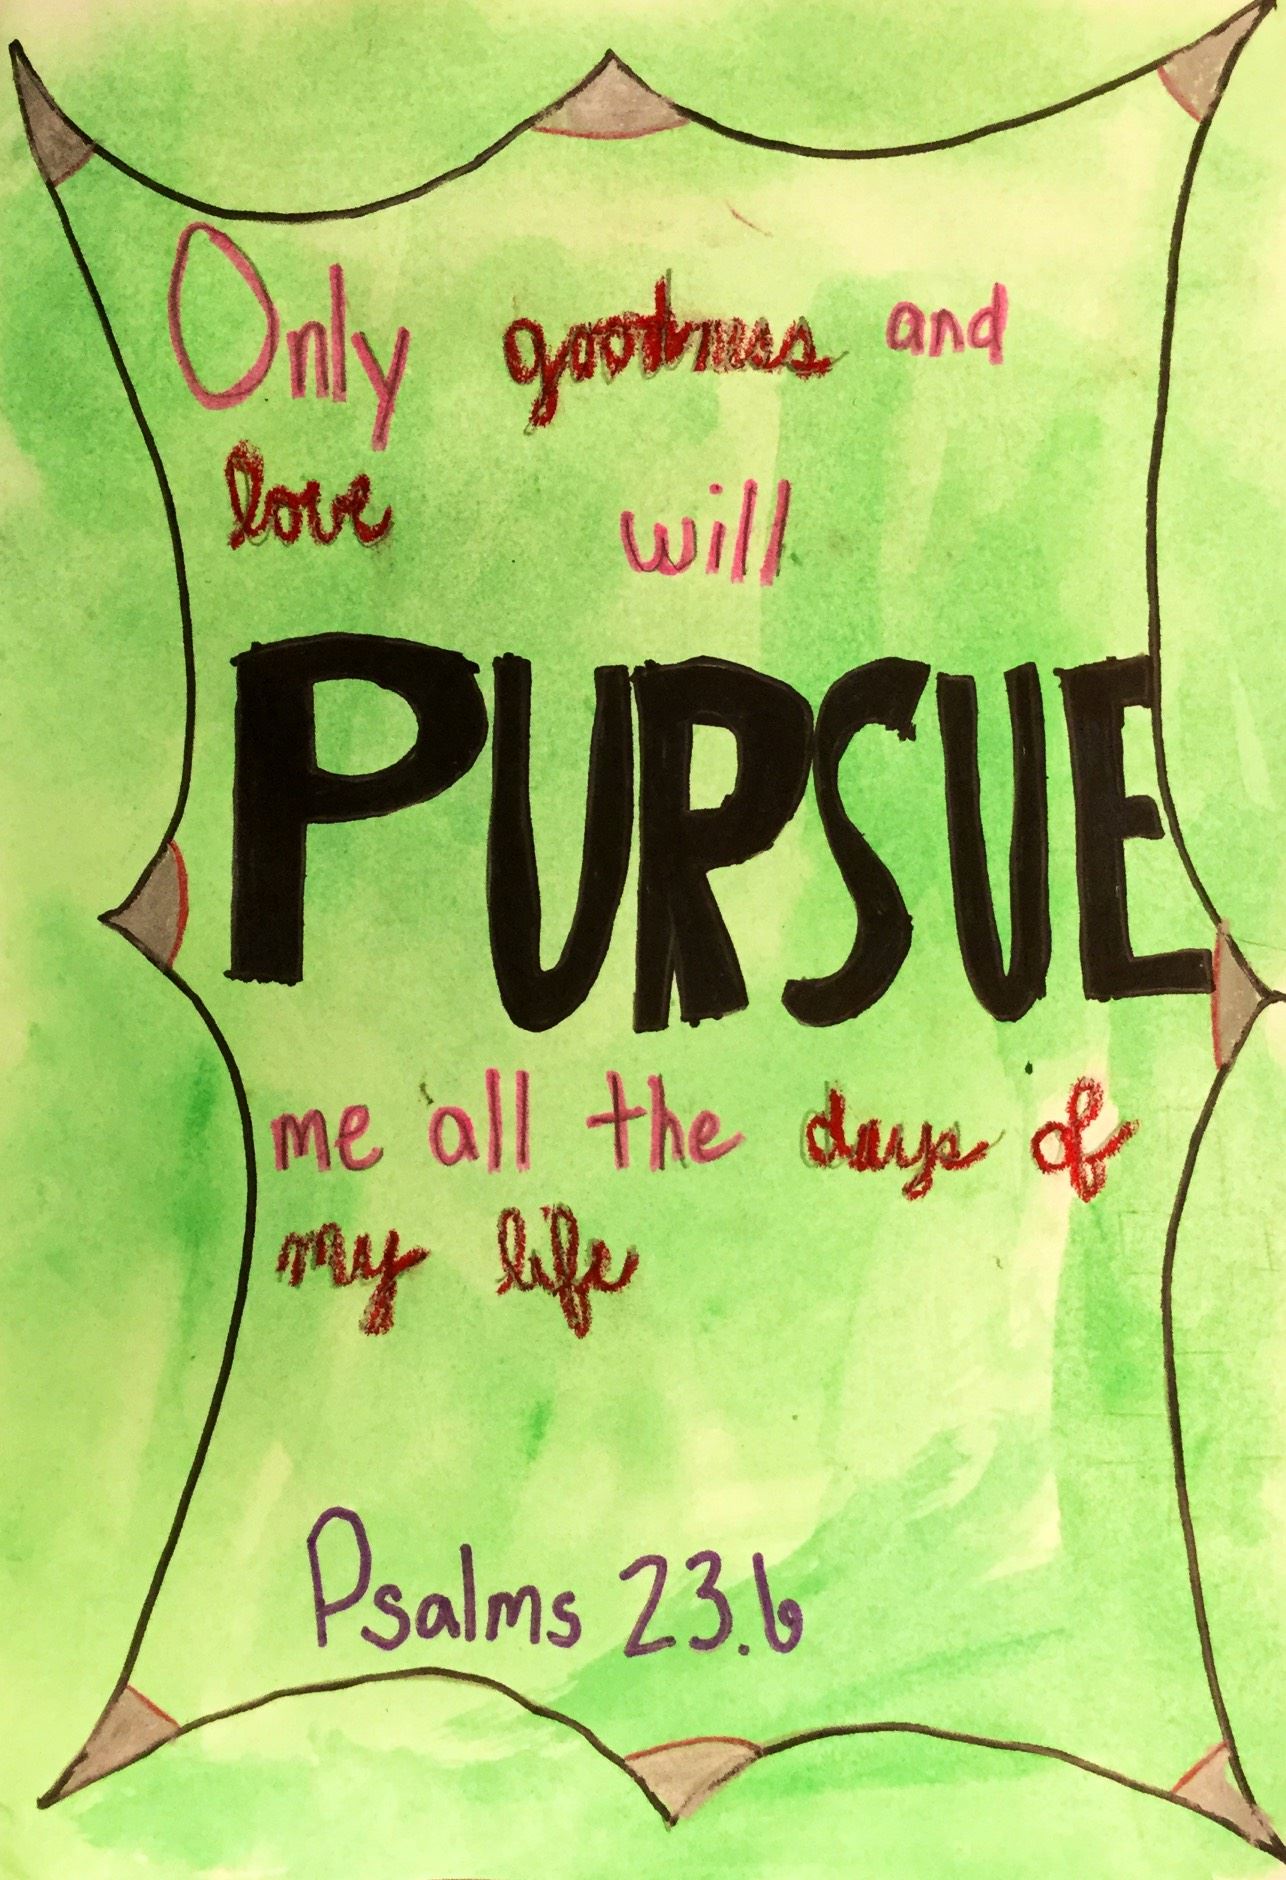 Only goodness and
love will
PURSUE
me all the days of
my life
Psalms 23.6